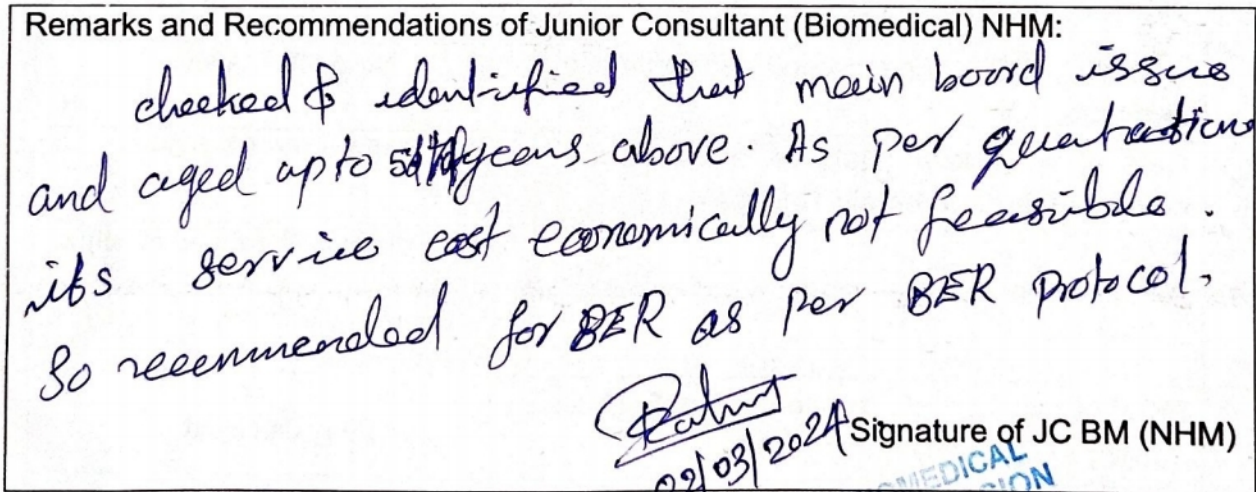 Remarks and Recommendations of Junior Consultant (Biomedical) NHM:
checked & identified that main board issue
and aged upto years above. As per quatations
its service cost economically not feasible.
So recommended for BER as per BER protocol.
02/03/2024 Signature of JC BM (NHM)